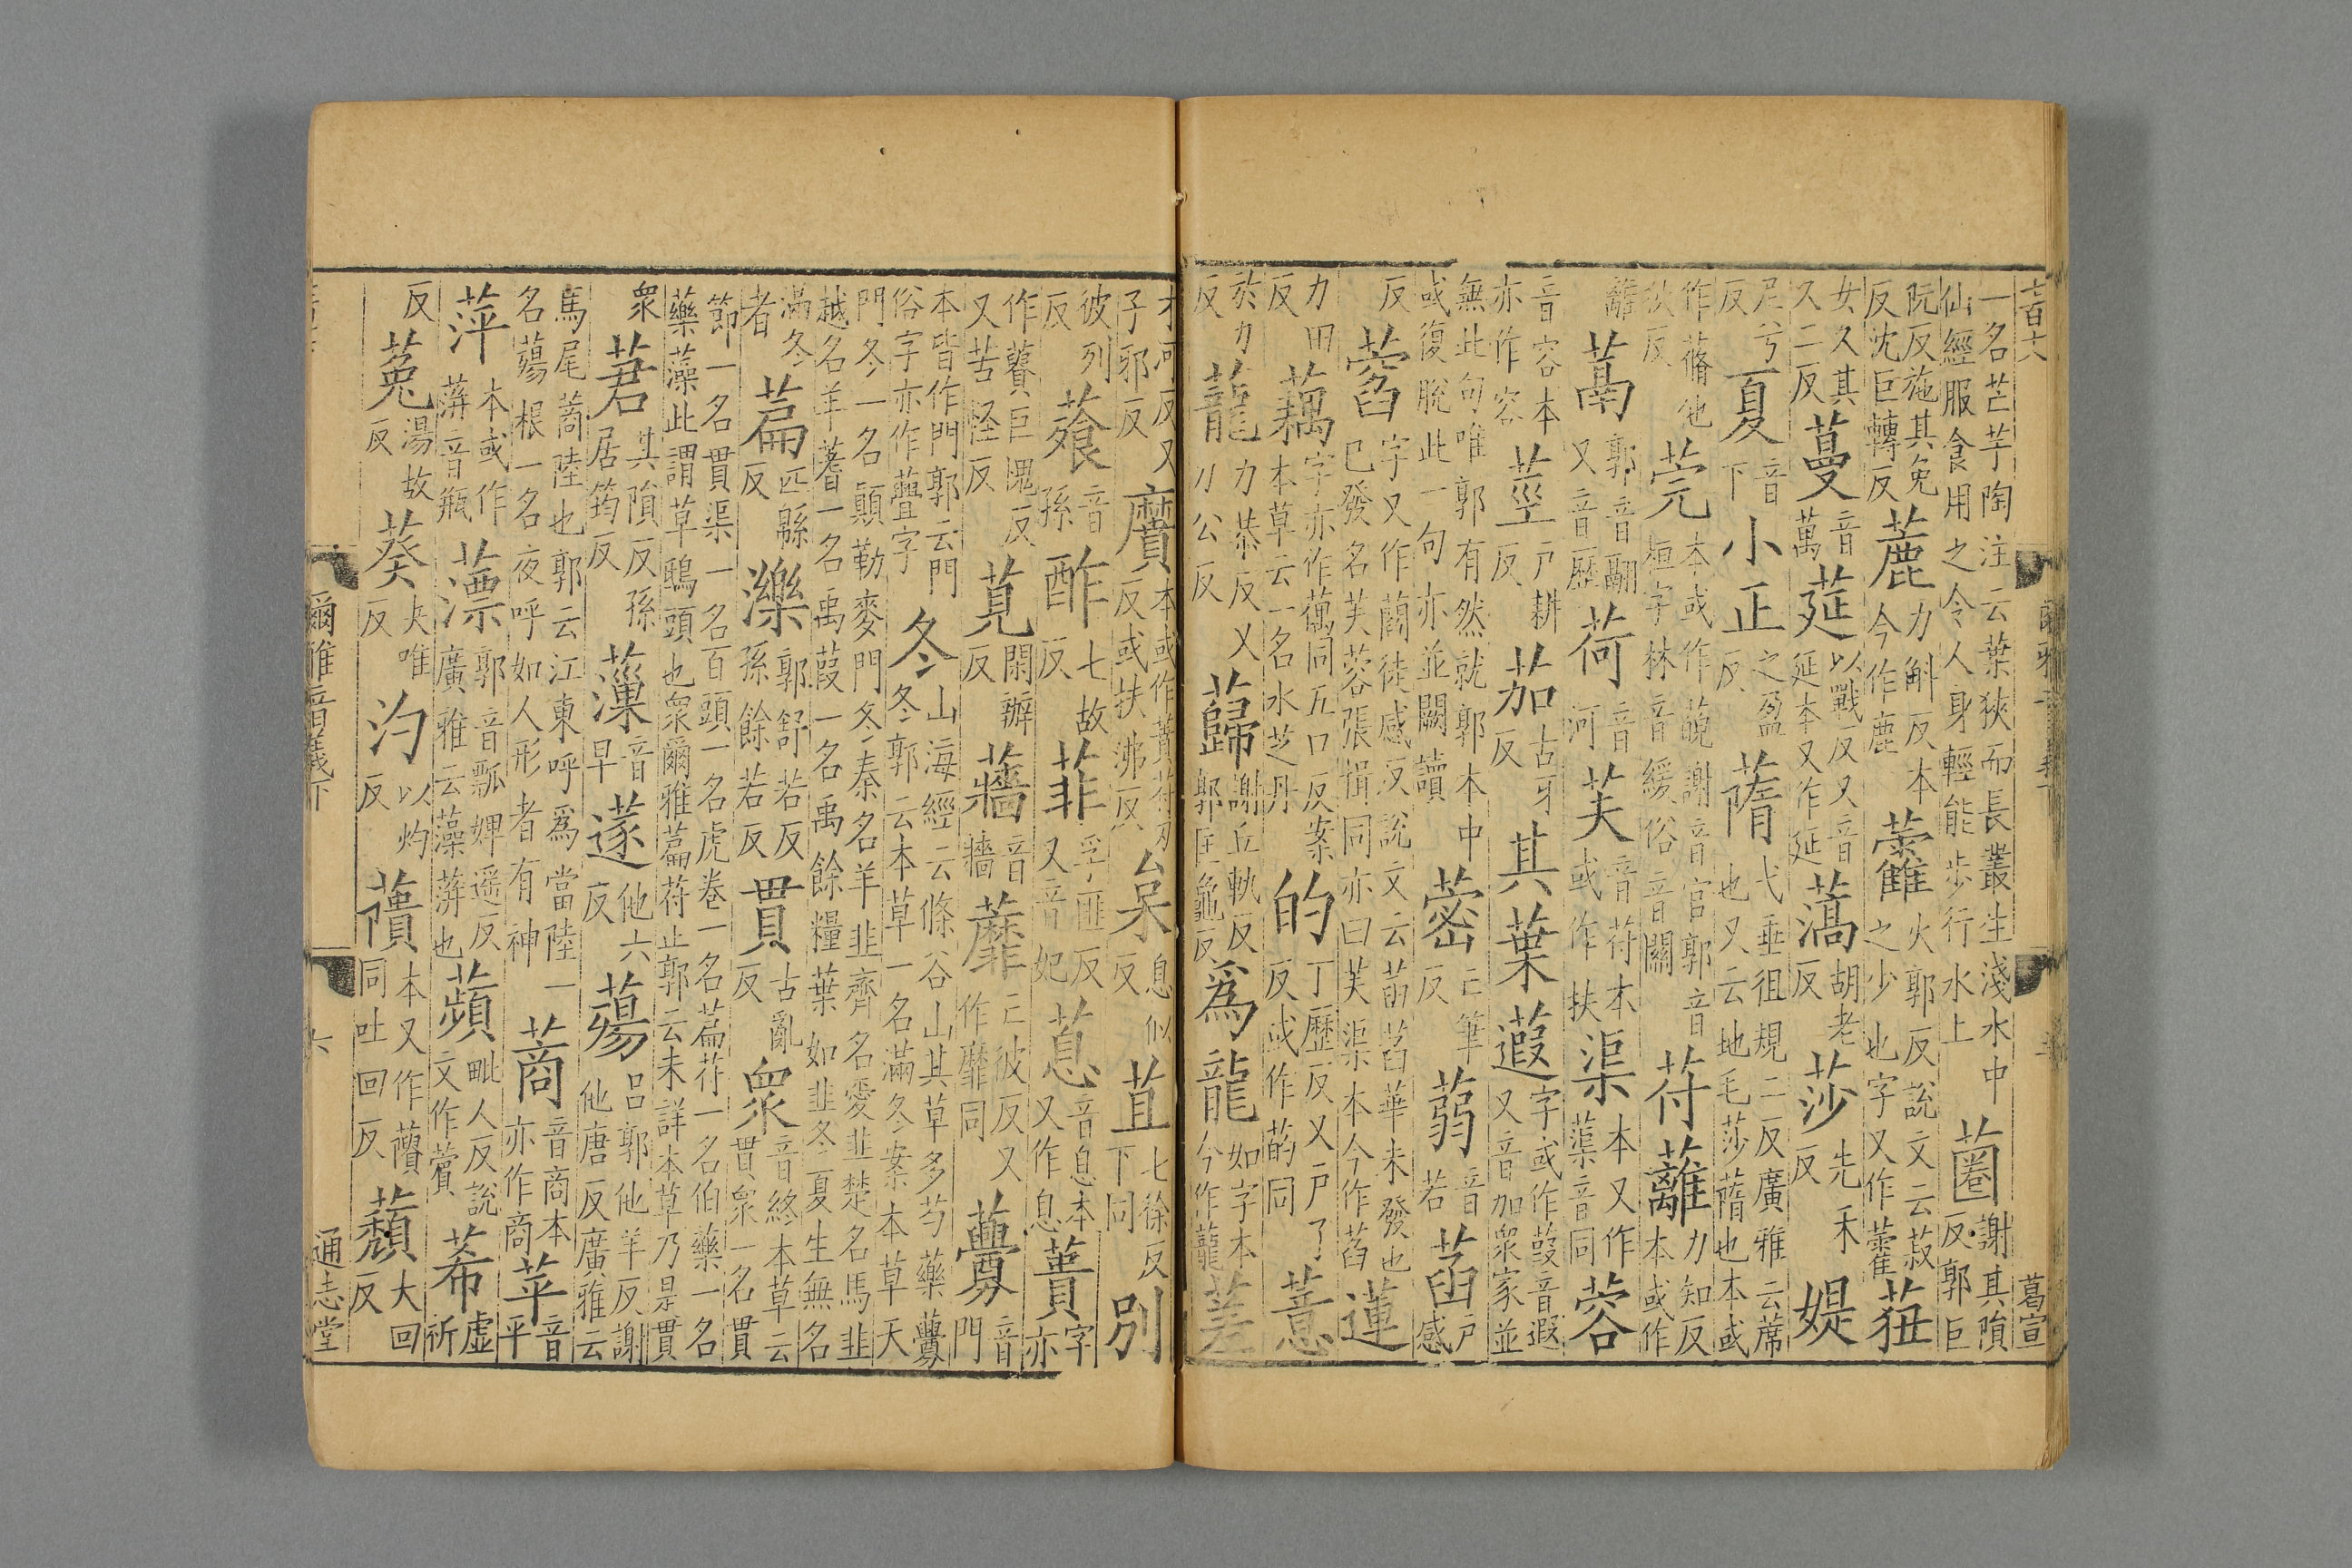 一名芒芋陶注云葉狹而長叢生淺水中
仙經服食用之令人身輕能步行水上
菌謝其隕反郭巨
阮反施其免反沈巨轉反
蔍力斛反本今作鹿
藿火郭反說文云菽之少也字又作藿
莥女久其久二反
蔓音萬
莚以戰反又音延本又作延
蒿胡老反
莎先禾反
媞尼兮反
夏音下
小正之盈反
蓨弋垂徂規二反廣雅云蓆也又云地毛莎蓨也本或作蓨他狄反
莞本或作䒽謝音官郭音桓字林音緩俗音關
苻
蘺力知反本或作離
䓪郭音翮又音歷
荷音河
芙音符本或作扶
渠本又作蕖音同
蓉音容本亦作容
莖戶耕反
茄古牙反
其葉
蕸字或作葭音遐又音加眾家並無此句唯郭有然就郭本中或復脫此一句亦並闕讀
蔤亡筆反
蒻音若
菡戶感反
萏字又作䕞徒感反說文云菡萏華未發也已發名芙蓉張揖同亦曰芙渠本今作萏
蓮力田反
藕字亦作蕅同五口反案本草云一名水芝丹
的丁歷反又戶了反或作菂同
薏於力反
蘢力恭反又力公反
蘬謝丘軌反郭匡龜反
為
龍如字本今作蘢
蒫才河反又子邪反
黂本或作蕡苻刃反或扶沸反
枲息似反
苴七徐反下同
別彼列反
薞音孫
酢七故反
菲孚匪反又音妃
蒠音息本又作息
蕢字亦作蕢巨愧反又苦怪反
莧閑辦反
蘠音牆
蘼亡彼反又作靡同
虋音門
本皆作門郭云門俗字亦作虋字
冬山海經云條谷山其草多芍藥虋冬郭云本草一名滿冬案本草天門冬一名顛勒麥門冬秦名羊韭齊名愛韭楚名馬韭越名羊蓍一名禹葭一名禹餘糧葉如韭冬夏生無名滿冬者
萹匹縣反
濼郭舒若反孫餘若反
貫古亂反
眾音終本草云貫眾一名貫節一名貫渠一名百頭一名虎卷一名萹苻一名伯藥一名藥藻此謂草鴟頭也眾爾雅萹苻止郭云未詳本草乃是貫眾
莙其隕反孫居筠反
薻音早
蓫他六反
蕩呂郭他羊反謝他唐反廣雅云馬尾蔏陸也郭云江東呼為當陸一名蕩根一名夜呼如人形者有神
蔏音商本亦作商
苹音平
萍本或作蓱音瓶
薸郭音瓢婢遙反廣雅云藻蓱也
蘋毗人反說文作薲
莃虛祈反
菟湯故反
葵夬唯反
汋以灼反
藬本又作蘈同吐回反
蘈大回反
爾雅音義下
六
通志堂
葛宣